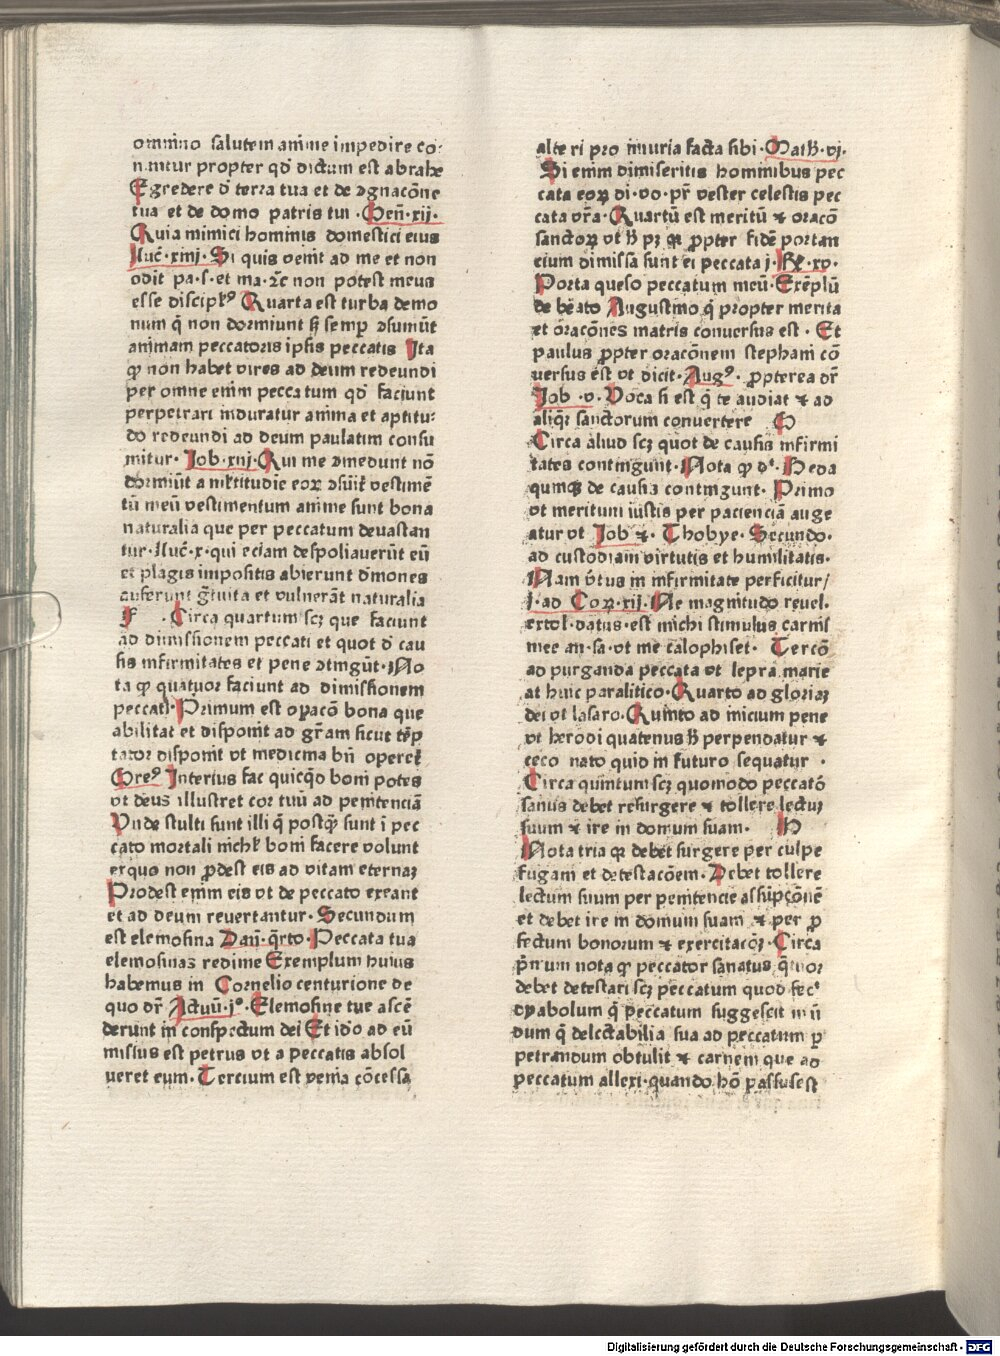 omnino salutem anime impedire co⸗
nantur propter qd̛ dictum est abrahe
Egredere d̛ terra tua et de ꝯgnacōne
tua et de domo patris tui · Gen̄·xij.
Quia inimici hominis domestici eius
Luc̄·xiiij· Si quis venit ad me et non
odit pa·s·et ma·ꝛc̄ non potest meus
esse discipłꝰ Quarta est turba demo
num q̄ non dormiunt sꝫ semꝑ ꝯsumūt
animam peccatoris ipsis peccatis Ita
ꝙ non habet vires ad deum redeundi
per omne enim peccatum qd̛ faciunt
perpetrari induratur anima et aptitu⸗
do redeundi ad deum paulatim consu
mitur· Job·xxx· Qui me ꝯmedunt nō
dormiūt a multitudīe eoꝝ ꝯsūit̄ vestimē
tū meū vestimentum anime sunt bona
naturalia que per peccatum devastan
tur·Luc̄·x·qui eciam despoliauerūt eū
et plagis impositis abierunt d̄mones
auferunt g̈tuita et vulnerāt naturalia
F · Circa quartum scꝫ que faciunt
ad dimissionem peccati et quot d̛ cau
sis infirmitates et pene ꝯtingūt· No
ta ꝙ quatuor faciunt ad dimissionem
peccati· Primum est oꝑacō bona que
abilitat et disponit ad gr̄am sicut tēꝑ
tator disponit vt medicina bn̄ operet̄
Greꝰ Interius fac quicq̄d boni potes
vt deus illustret cor tuū ad penitenciā
Vnde stulti sunt illi q̄ postꝙ̄ sunt ī pec
cato mortali nichil boni facere volunt
ex quo non ꝓdest eis ad vitam eternaꝫ
Prodest enim eis vt de peccato exeant
et ad deum reuertantur· Secundum
est elemosina Dan̄·q̄rto· Peccata tua
elemosinas redime Exemplum huius
habemus in Cornelio centurione de
quo dr̄ Actuū·x°· Elemosine tue ascē
derunt in conspectum dei Et iō ad eū
missus est petrus vt a peccatis absol
ueret eum· Tercium est venia cōcessa
alteri pro iniuria facta sibi· Math·vj.
Si enim dimiseritis hominibus pec
cata eoꝝ di·vo·pr̄ vester celestis pec
cata vr̄a· Quartū est meritū ⁊ oracō
sanctoꝝ vt h̛ pꝫ qꝛ ꝓpter fidē portan
cium dimissa sunt ei peccata j·Rꝫ·xv·
Porta queso peccatum meū· Exēplū
de bēato Augustino q̄ propter merita
et oracōnes matris conuersus est· Et
paulus ꝓpter oracōnem stephani cō
uersus est vt dicit· Augꝰ· ꝓpterea dr̄
Job·v· Voca si est q̄ te audiat ⁊ ad
aliqꝫ sanctorum conuertere G
Circa aliud scꝫ quot de causis infirmi
tates contingunt· Nota ꝙ d̛· Beda
qumꝗ de causis contingunt· Primo
vt meritum iustis per pacienciā auge
atur vt Job ⁊· Thobye· Secundo·
ad custodiam virtutis et humilitatis·
Nam v̄tus in infirmitate perficitur/
j·ad Coꝝ·xij· Ne magnitudo reuel.
extol·datus·est michi stimulus carnis
mee an·sa·vt me calophiset· Tercō
ad purganda peccata vt lepra marie
at huic paralitico· Quarto ad gloriaꝫ
dei vt lasaro· Quinto ad inicium pene
vt herodi quatenus h̛ perpendatur ⁊
ceco nato quid in futuro sequatur ·
Circa quintum scꝫ quomodo peccatō
sanus debet resurgere ⁊ tollere lectuꝫ
suum ⁊ ire in domum suam· H
Nota tria qꝛ debet surgere per culpe
fugam et detestacōem· Debet tollere
lectum suum per penitencie assūpcōnē
et debet ire in domum suam ⁊ per ꝓ
fectum bonorum ⁊ exercitacōꝫ· Circa
p̄mum nota ꝙ peccator sanatus q̄tuor
debet detestari scꝫ peccatum quod fecͭ
dyabolum q̄ peccatum suggescit mūn
dum q̄ delectabilia sua ad peccatum ꝑ
petrandum obtulit ⁊ carnem que ad
peccatum allexi·quando hō passus est
Digitalisierung gefördert durch die Deutsche Forschungsgemeinschaft - DFG